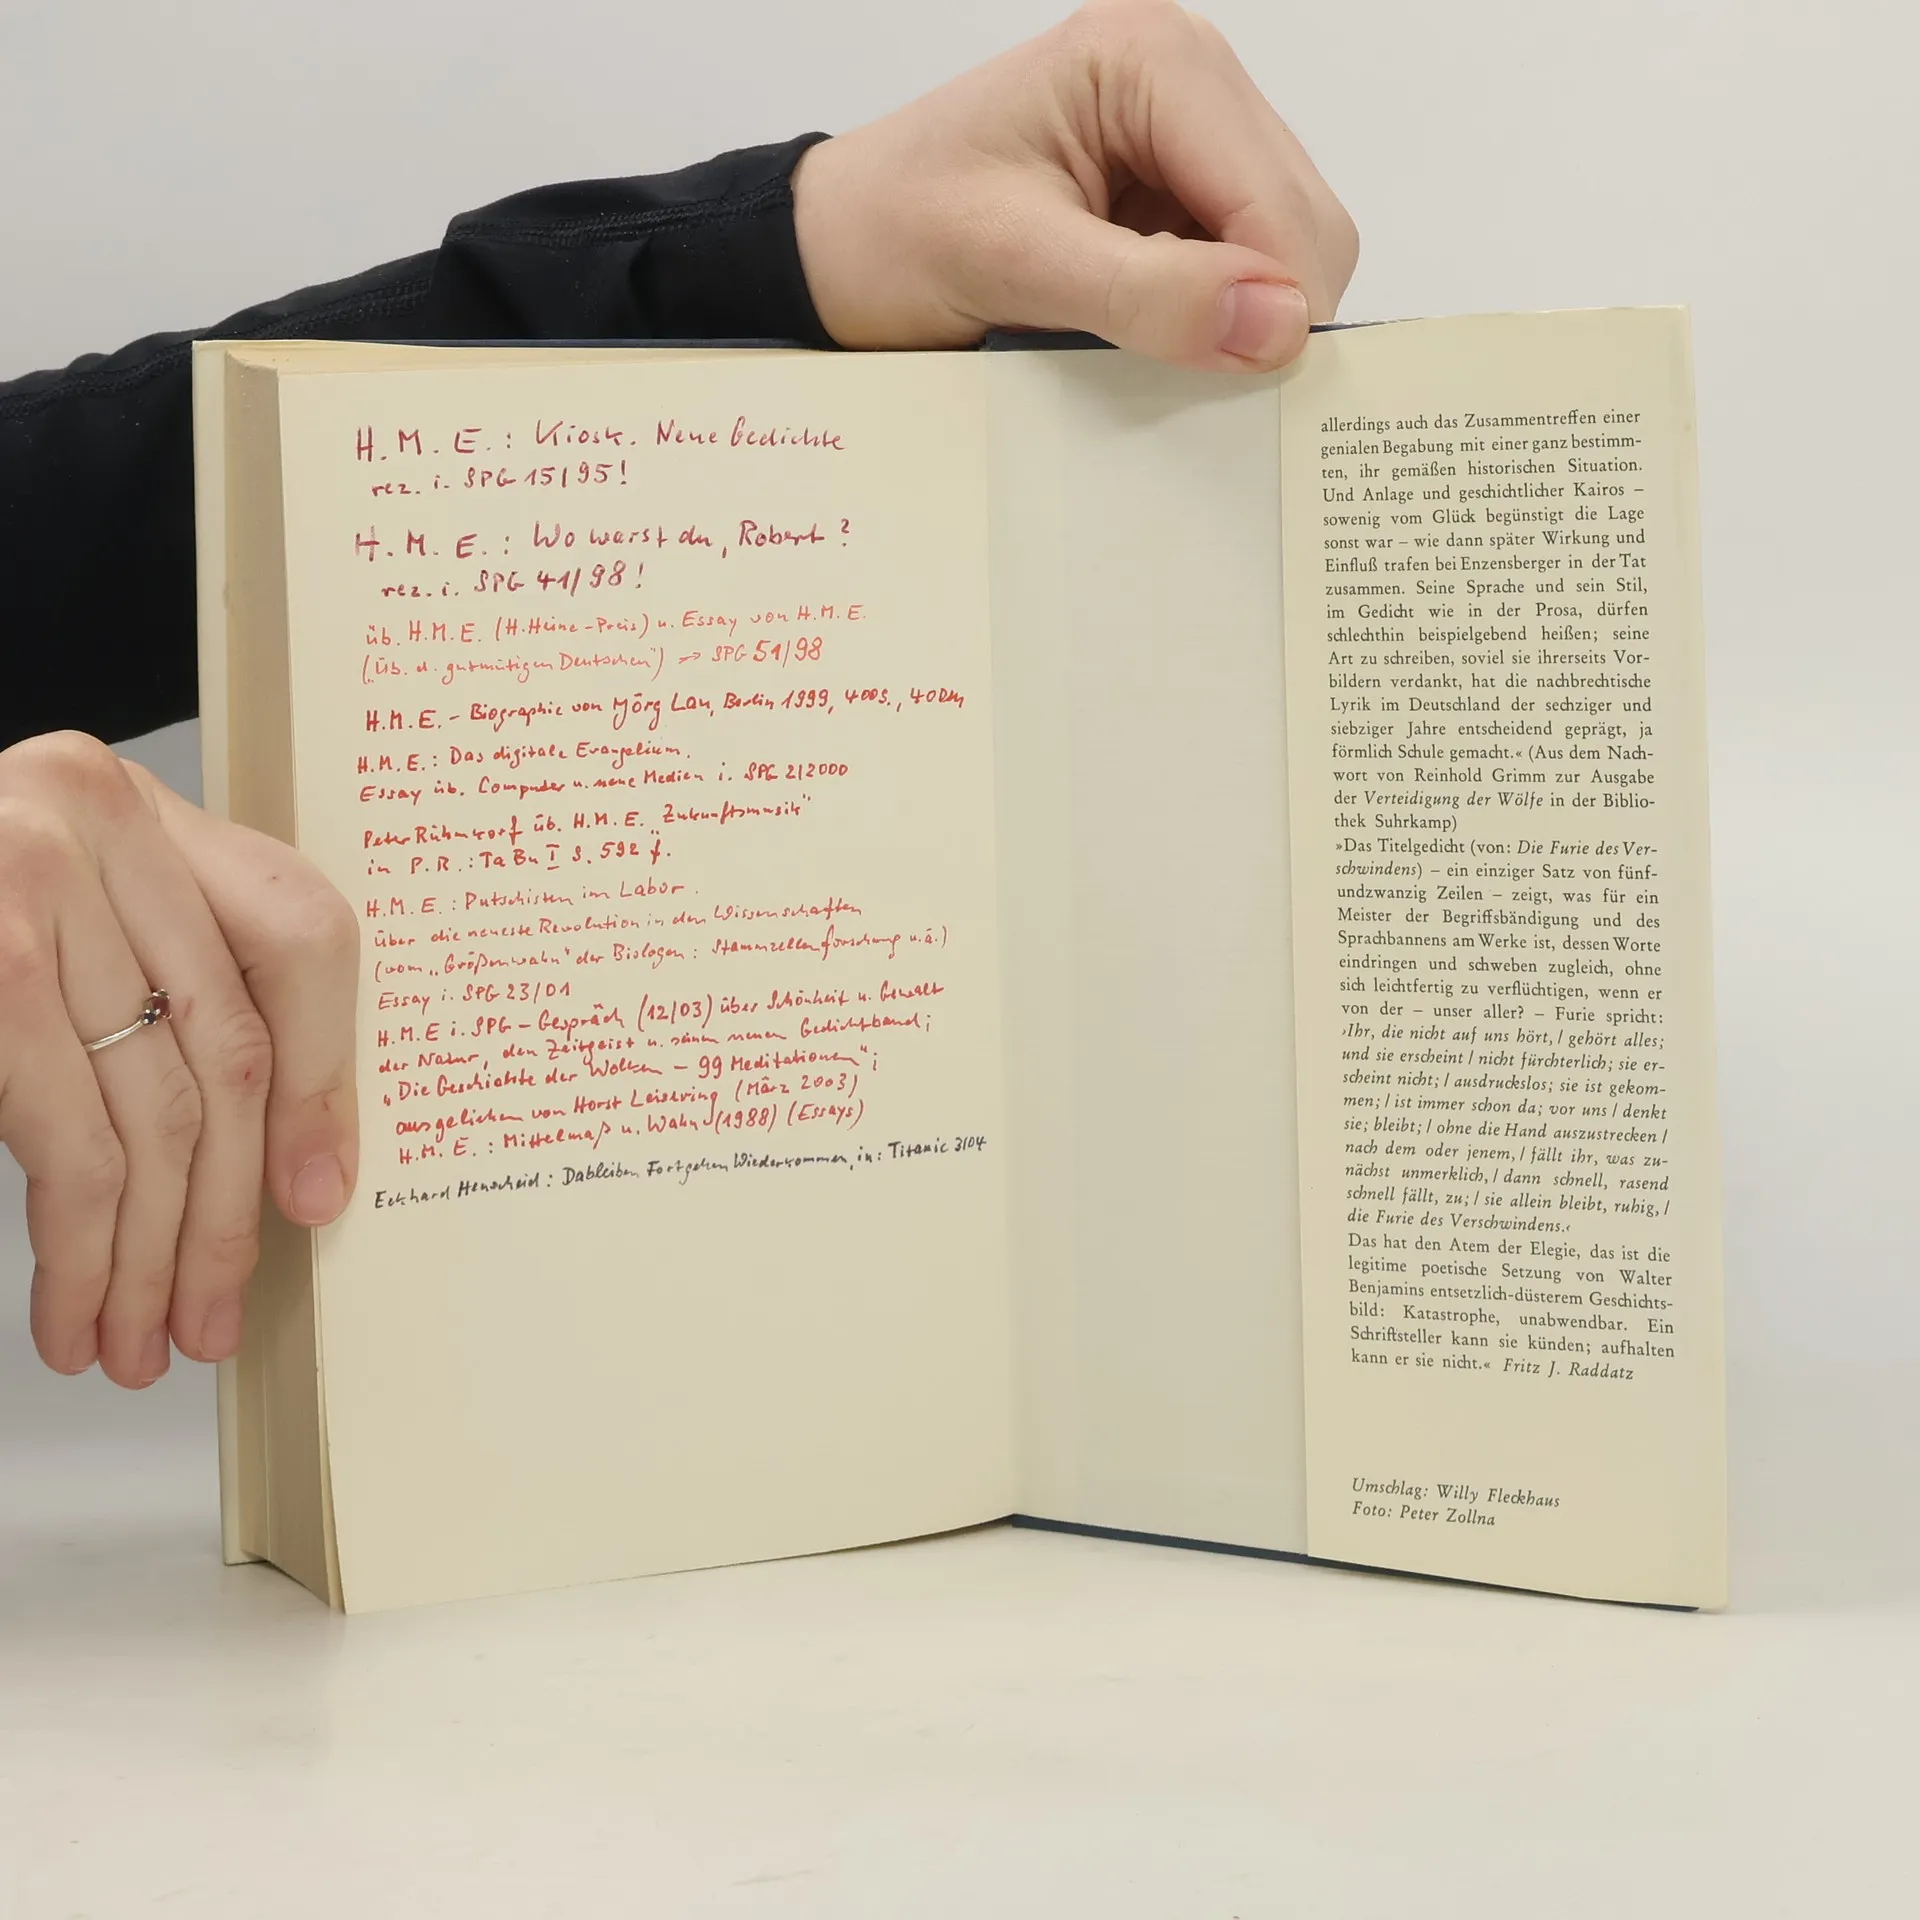 H.M.E.: Kiosk. Neue Gedichte
rez. i. SPG 15/95!
H.M.E.: Wo warst du, Robert?
rez. i. SPG 41/98!
üb. H.M.E. (H.Heine-Preis) u. Essay von H.M.E.
(„Üb. d. gutmütigen Deutschen") → SPG 51/98
H.M.E. - Biographie von Jörg Lau, Berlin 1999, 400S., 40DM
H.M.E.: Das digitale Evangelium.
Essay üb. Computer u. neue Medien i. SPG 2/2000
Peter Rühmkorf üb. H.M.E. „Zukunftsmusik"
in P.R.: TaBu I S. 592 f.
H.M.E.: Putschisten im Labor.
Über die neueste Revolution in den Wissenschaften
(vom „Größenwahn" der Biologen: Stammzellenforschung u.ä.)
Essay i. SPG 23/01
H.M.E i. SPG-Gespräch (12/03) über Schönheit u. Gewalt
der Natur, den Zeitgeist u. seinen neuen Gedichtband;
„Die Geschichte der Wolken - 99 Meditationen";
ausgeliehen von Horst Leisering (März 2003)
H.M.E.: Mittelmaß u. Wahn (1988) (Essays)
Eckhard Henscheid: Dableiben Fortgehen Wiederkommen, in: Titanic 3/04
allerdings auch das Zusammentreffen einer
genialen Begabung mit einer ganz bestimm-
ten, ihr gemäßen historischen Situation.
Und Anlage und geschichtlicher Kairos –
sowenig vom Glück begünstigt die Lage
sonst war – wie dann später Wirkung und
Einfluß trafen bei Enzensberger in der Tat
zusammen. Seine Sprache und sein Stil,
im Gedicht wie in der Prosa, dürfen
schlechthin beispielgebend heißen; seine
Art zu schreiben, soviel sie ihrerseits Vor-
bildern verdankt, hat die nachbrechtische
Lyrik im Deutschland der sechziger und
siebziger Jahre entscheidend geprägt, ja
förmlich Schule gemacht.« (Aus dem Nach-
wort von Reinhold Grimm zur Ausgabe
der Verteidigung der Wölfe in der Biblio-
thek Suhrkamp)
»Das Titelgedicht (von: Die Furie des Ver-
schwindens) – ein einziger Satz von fünf-
undzwanzig Zeilen – zeigt, was für ein
Meister der Begriffsbändigung und des
Sprachbannens am Werke ist, dessen Worte
eindringen und schweben zugleich, ohne
sich leichtfertig zu verflüchtigen, wenn er
von der – unser aller? – Furie spricht:
›Ihr, die nicht auf uns hört, / gehört alles;
und sie erscheint / nicht fürchterlich; sie er-
scheint nicht; / ausdruckslos; sie ist gekom-
men; / ist immer schon da; vor uns / denkt
sie; bleibt; / ohne die Hand auszustrecken /
nach dem oder jenem, / fällt ihr, was zu-
nächst unmerklich, / dann schnell, rasend
schnell fällt, zu; / sie allein bleibt, ruhig, /
die Furie des Verschwindens.‹
Das hat den Atem der Elegie, das ist die
legitime poetische Setzung von Walter
Benjamins entsetzlich-düsterem Geschichts-
bild: Katastrophe, unabwendbar. Ein
Schriftsteller kann sie künden; aufhalten
kann er sie nicht.« Fritz J. Raddatz
Umschlag: Willy Fleckhaus
Foto: Peter Zollna